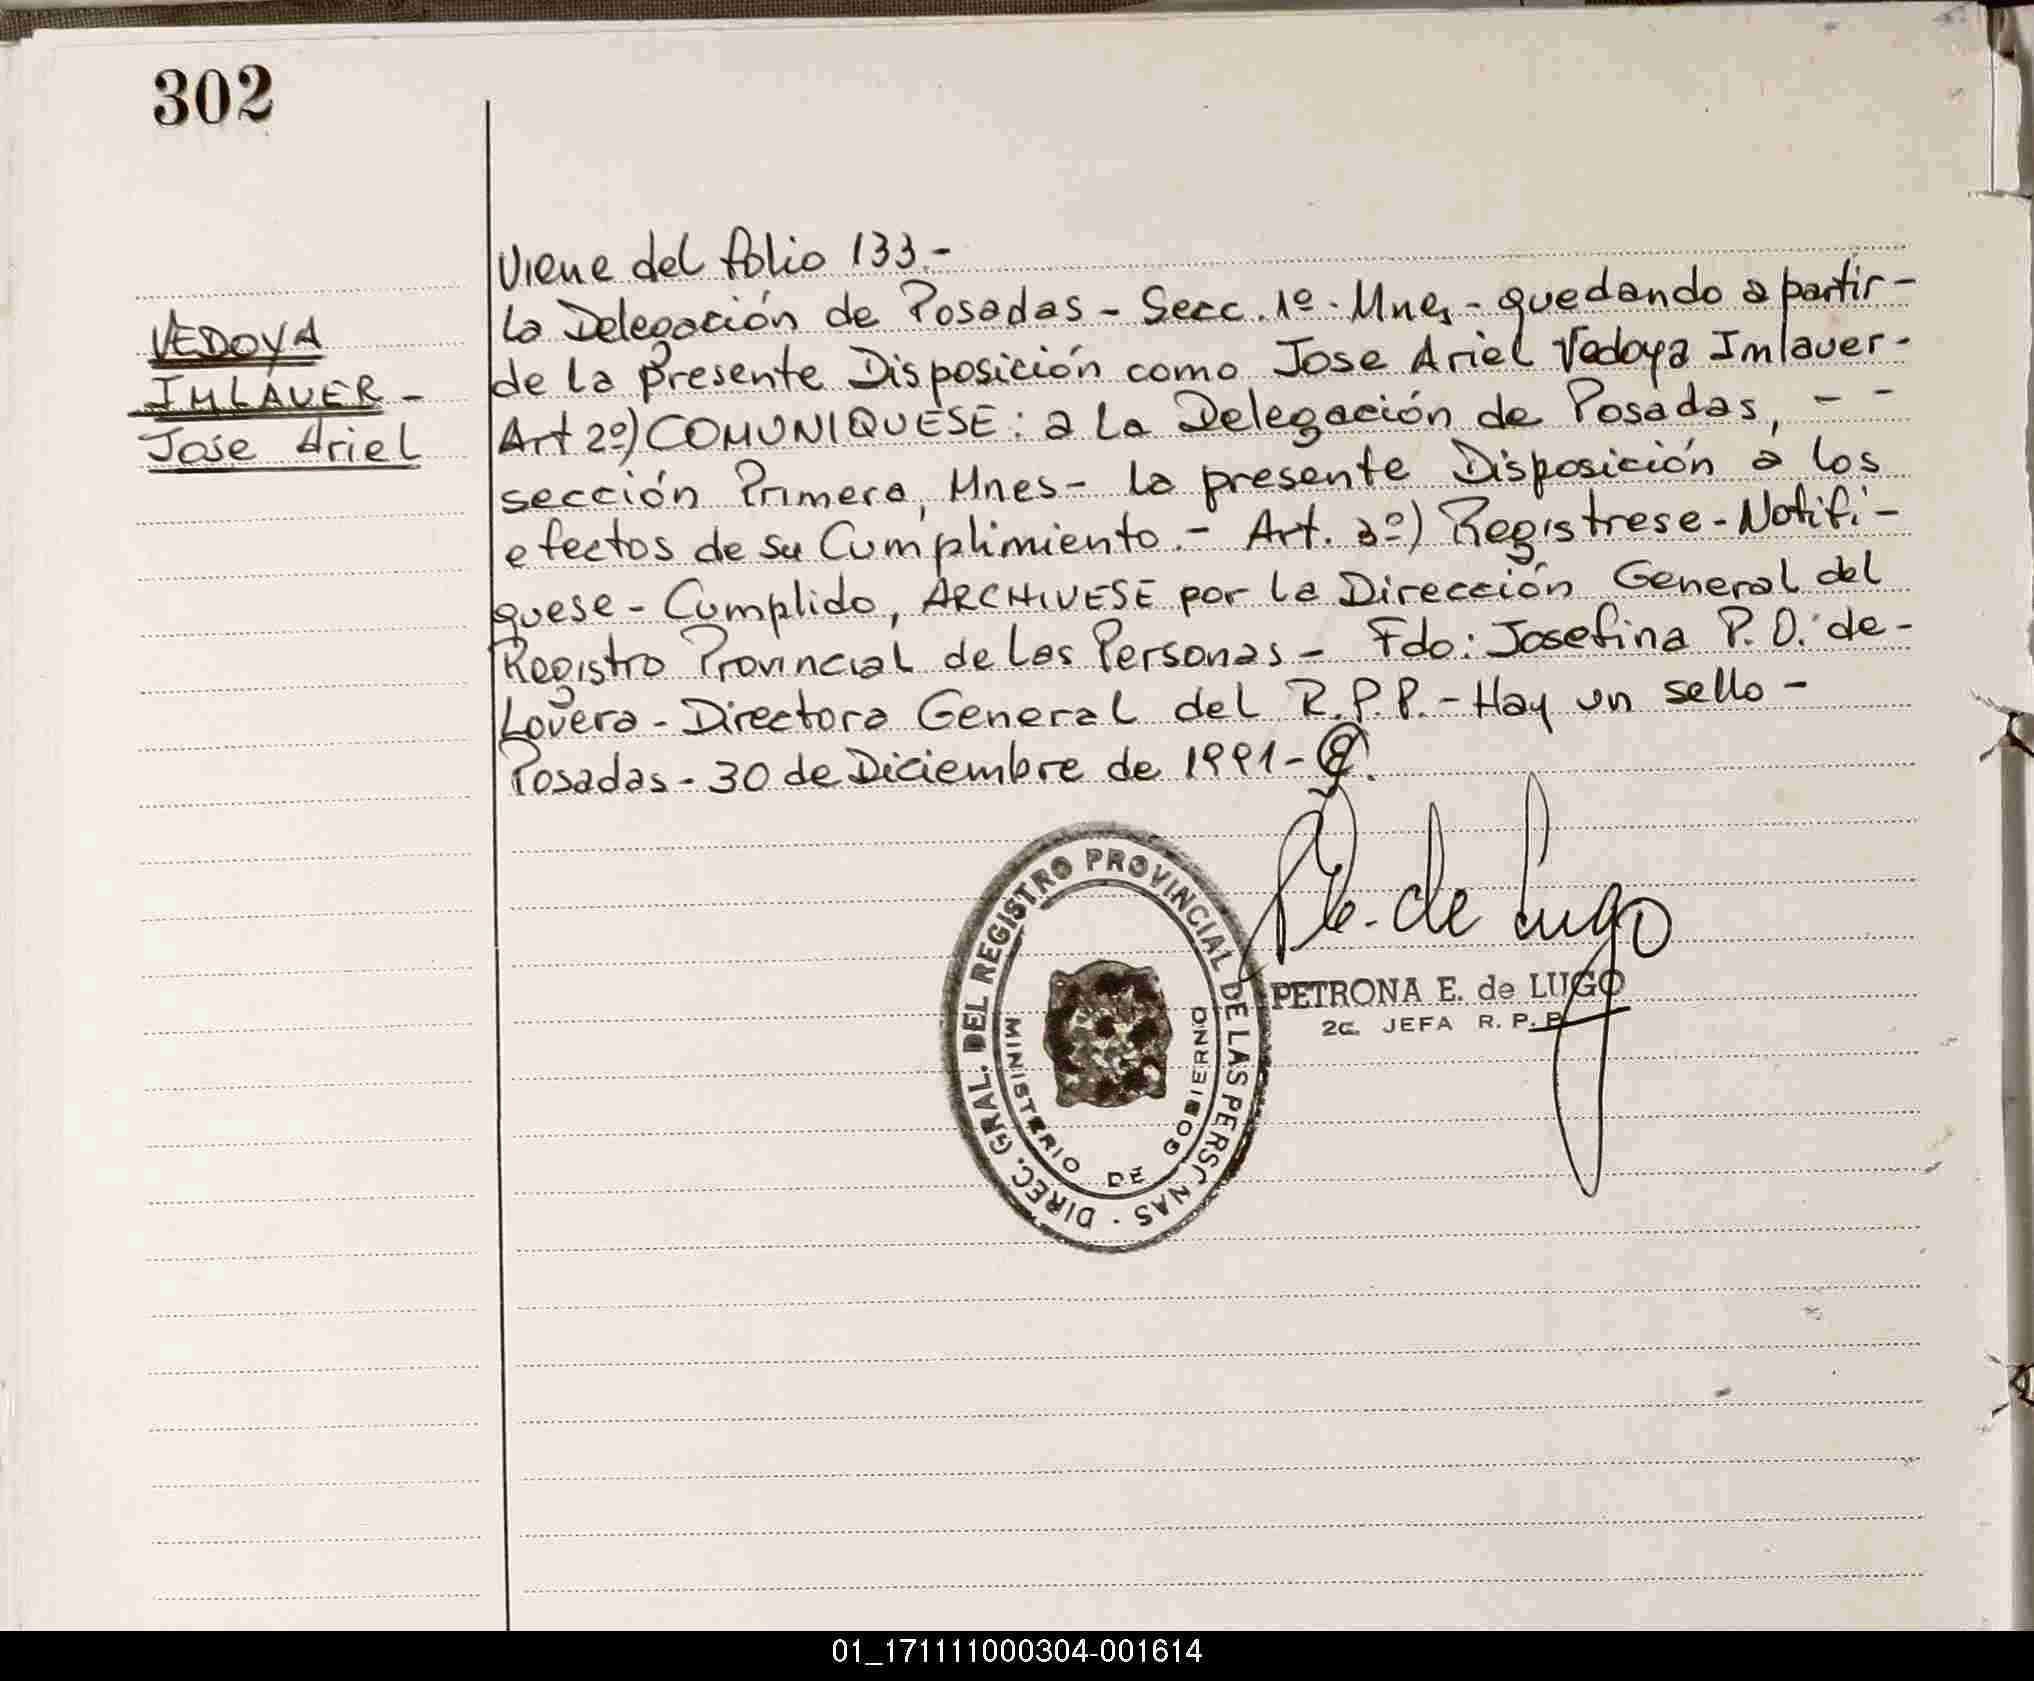 302
VEDOYA
IMLAUER -
Jose Ariel
Viene del folio 133.-
la Delegación de Posadas - Secc. 1º - Mnes - quedando a partir -
de la presente Disposición como Jose Ariel Vedoya Imlauer -
Art 2º) COMUNIQUESE: a la Delegación de Posadas, - -
sección Primera, Mnes - la presente Disposición a los
efectos de su Cumplimiento. - Art. 3º) Registrese - Notifi -
quese - Cumplido, ARCHIVESE por la Dirección General del
Registro Provincial de las Personas - Fdo: Josefina P. O. de -
Lovera - Directora General del R.P.P. - Hay un sello -
Posadas - 30 de Diciembre de 1991 -
de Lugo
PETRONA E. de LUGO
2a. JEFA R. P. P.
DIREC. GRAL. DEL REGISTRO PROVINCIAL DE LAS PERSONAS
MINISTERIO DE GOBIERNO
01_171111000304-001614